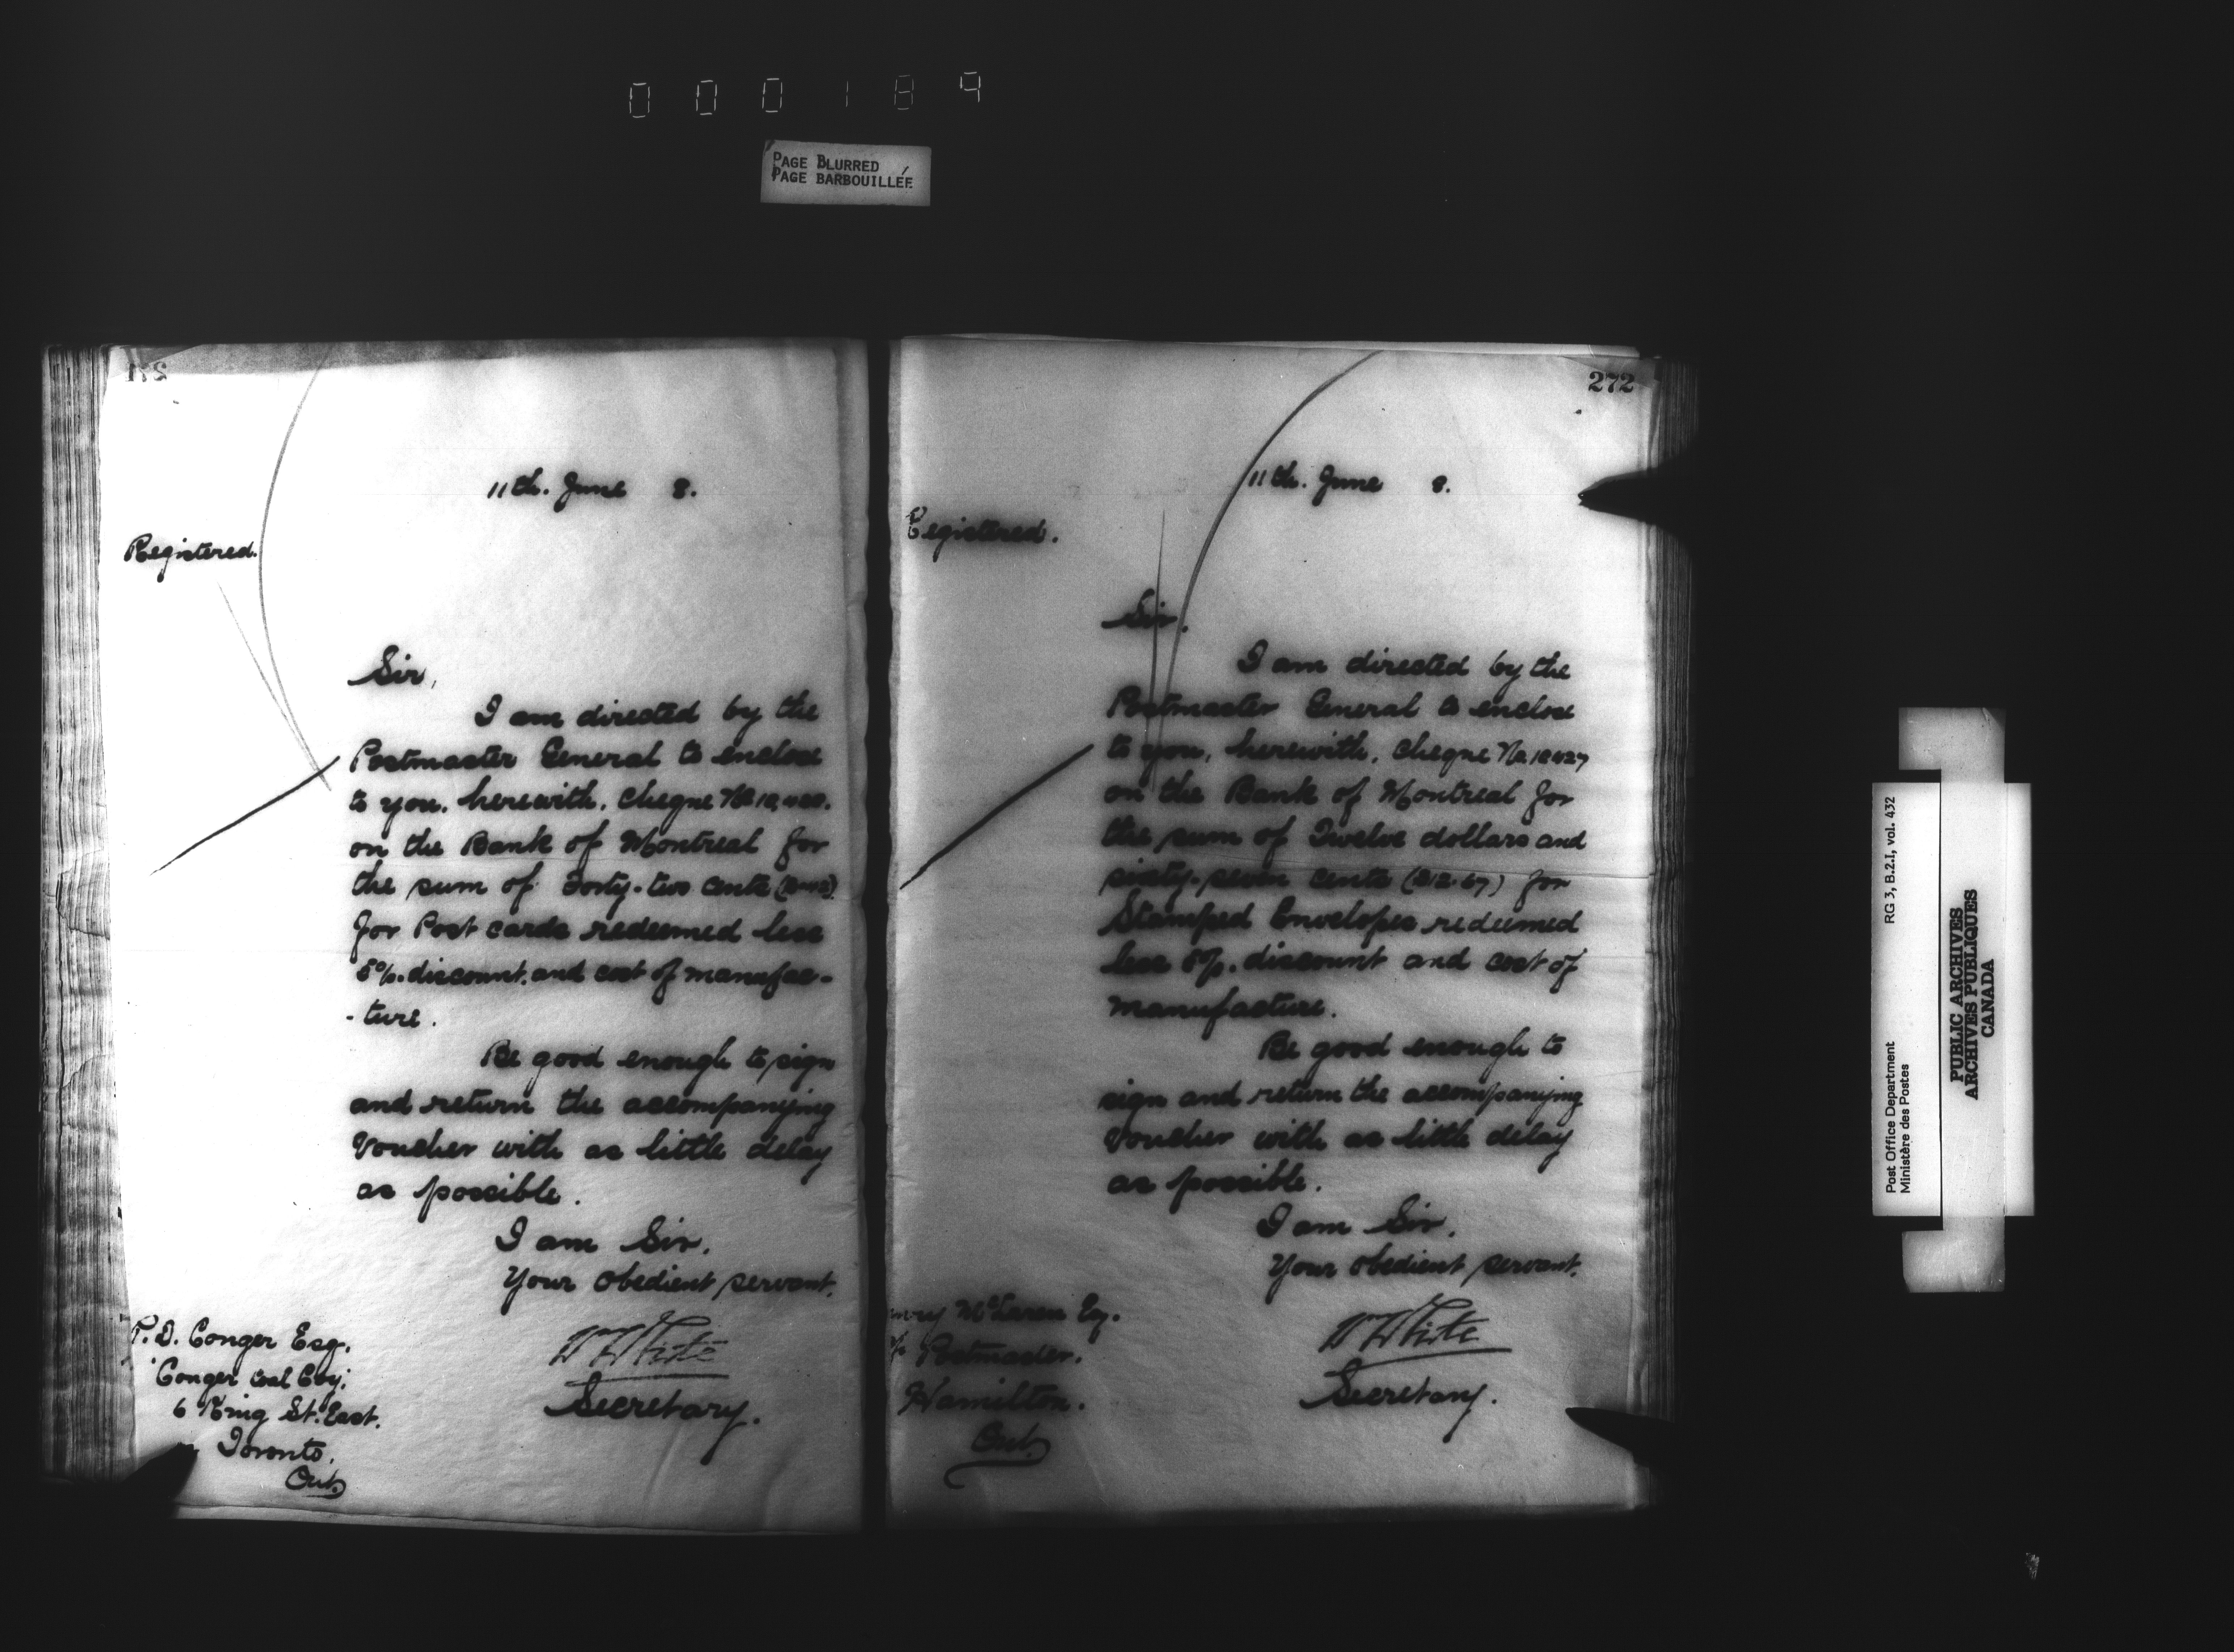 000189
PAGE BLURRED
PAGE BARBOUILLÉE
271
11th. June 8.
Registered.
Sir,
I am directed by the
Postmaster General to enclose
to you, herewith, cheque No
on the Bank of Montreal for
the sum of Forty-two cents
for Post cards redeemed less
8%. discount, and cost of manufac-
-ture.
Be good enough to sign
and return the accompanying
voucher with as little delay
as possible.
I am Sir,
Your obedient servant,
W White
Secretary.
P. D. Conger Esq.
Conger Coal Coy,
6 King St. East.
Toronto,
Ont.
272
11th. June 8.
Registered.
Sir,
I am directed by the
Postmaster General to enclose
to you, herewith, cheque No
on the Bank of Montreal for
the sum of Twelve dollars and
sixty-seven cents ($12.67) for
Stamped Envelopes redeemed
less 8%. discount and cost of
manufacture.
Be good enough to
sign and return the accompanying
voucher with as little delay
as possible.
I am Sir,
Your obedient servant,
W White
Secretary.
McLaren Esq.
Postmaster.
Hamilton.
Ont.
Post Office Department RG 3, B.2.I, vol. 432
Ministère des Postes
PUBLIC ARCHIVES
ARCHIVES PUBLIQUES
CANADA